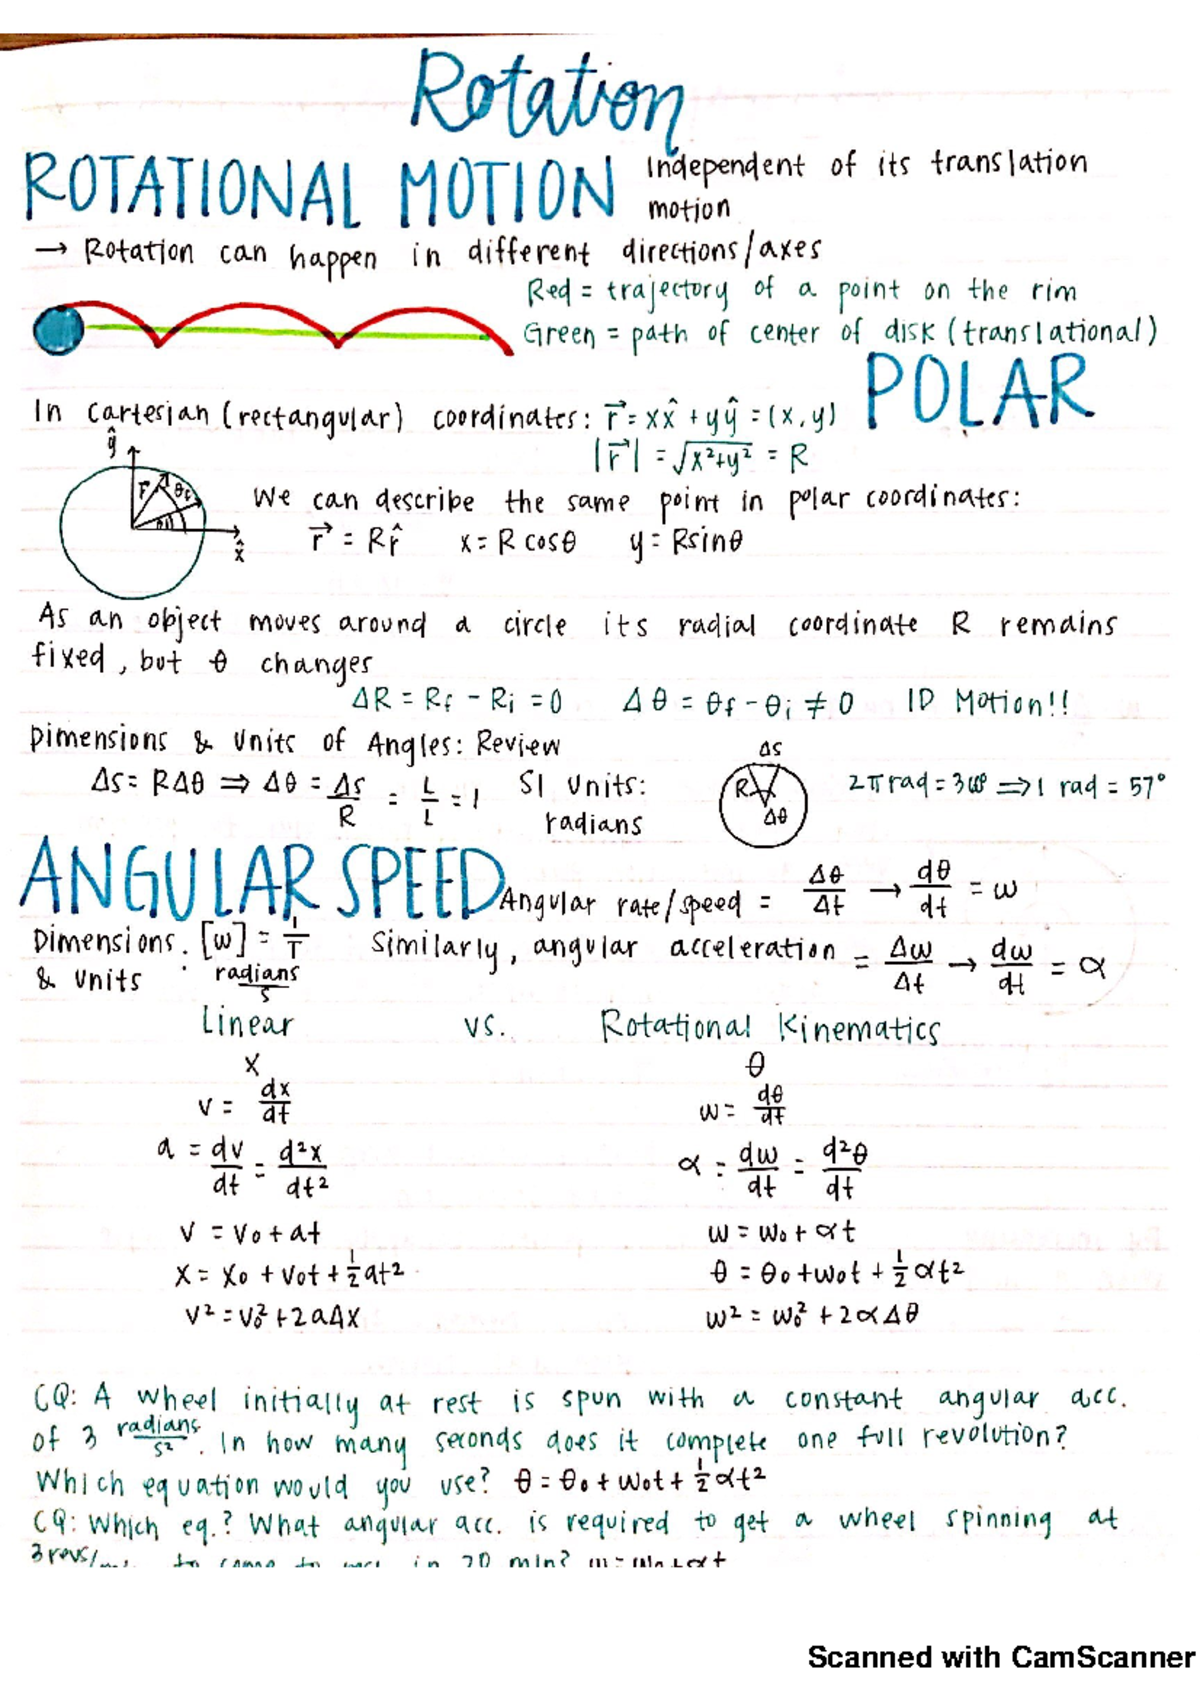 Rotation
ROTATIONAL MOTION Independent of its translation motion
→ Rotation can happen in different directions/axes
Red = trajectory of a point on the rim
Green = path of center of disk (translational)
POLAR
In Cartesian (rectangular) coordinates: r⃗ = xx̂ + yŷ = (x, y)
|r⃗| = √x²+y² = R
ŷ
r θf
θi
x̂
We can describe the same point in polar coordinates:
r⃗ = Rr̂ x = R cosθ y = Rsinθ
As an object moves around a circle its radial coordinate R remains
fixed, but θ changes
ΔR = Rf - Ri = 0 Δθ = θf - θi ≠ 0 1D Motion!!
Dimensions & Units of Angles: Review
Δs = RΔθ ⇒ Δθ = Δs/R = L/L = 1 SI Units: radians
Δs
R
Δθ
2π rad = 360° ⇒ 1 rad = 57°
ANGULAR SPEED Angular rate/speed = Δθ/Δt → dθ/dt = ω
Dimensions & Units : [ω] = 1/T radians/s
Similarly, angular acceleration = Δω/Δt → dω/dt = α
Linear vs. Rotational Kinematics
x θ
v = dx/dt ω = dθ/dt
a = dv/dt = d²x/dt² α = dω/dt = d²θ/dt
v = v₀ + at ω = ω₀ + αt
x = x₀ + v₀t + ½at² θ = θ₀ + ω₀t + ½αt²
v² = v₀² + 2aΔx ω² = ω₀² + 2αΔθ
CQ: A wheel initially at rest is spun with a constant angular acc.
of 3 radians/s². In how many seconds does it complete one full revolution?
Which equation would you use? θ = θ₀ + ω₀t + ½αt²
CQ: Which eq.? What angular acc. is required to get a wheel spinning at
3 revs/ to come to in 20 min? ω = ω₀ + αt
Scanned with CamScanner